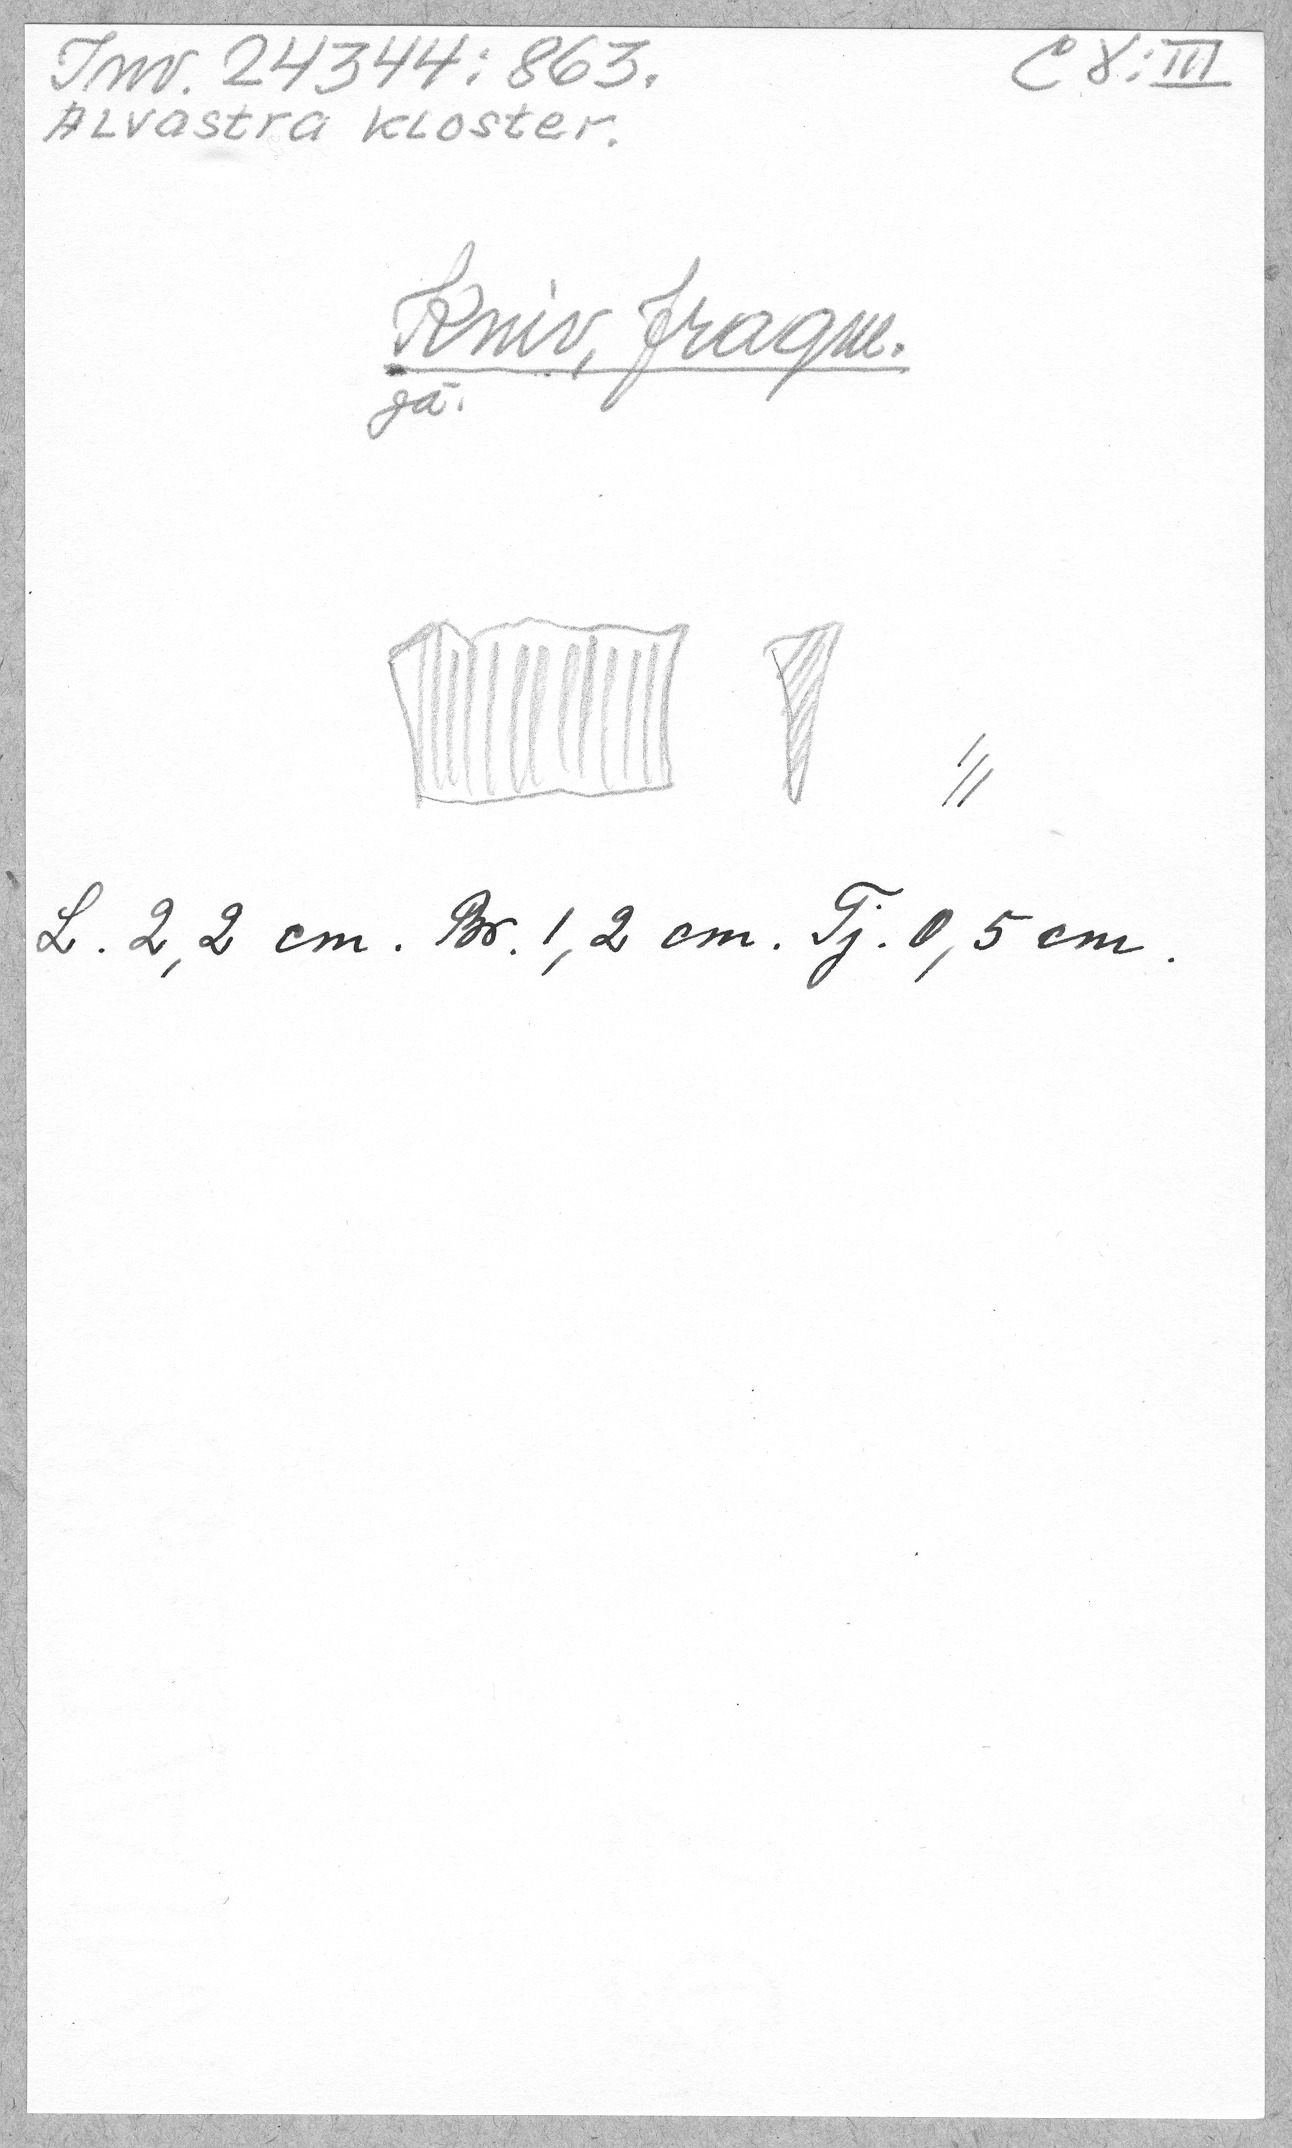 Inv. 24344:863. C 8:III
Alvastra kloster.
Kniv, fragm.
L. 2,2 cm. Br. 1,2 cm. Tj. 0,5 cm.